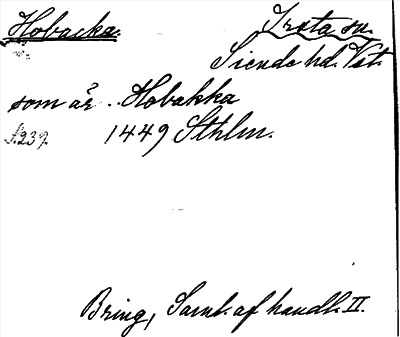 Hobacka. Irsta sn.
Siende hd. Vst.
som är .. Hobakka
s. 239. 1449 Sthlm.
Bring, Saml. af handl. II.